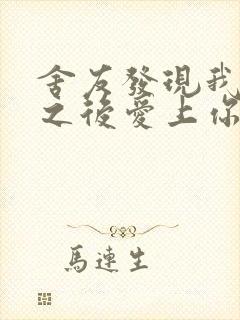 舍友發現我
之後愛上你
馬連生